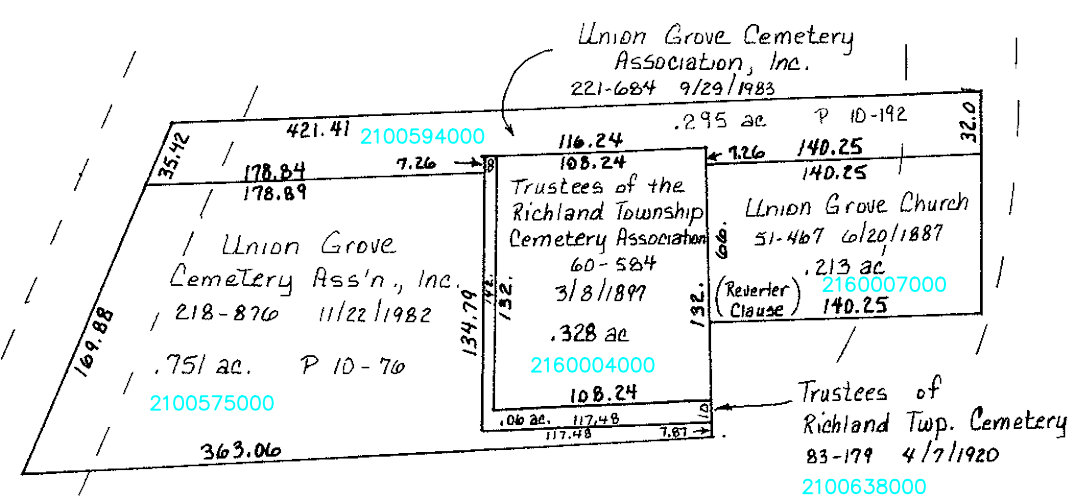 Union Grove Cemetery
Association, Inc.
221-684 9/29/1983
.295 ac P 10-192
32.0
35.42
421.41
2100594000
116.24
7.26
7.26
140.25
178.84
178.89
8
108.24
140.25
Trustees of the
Richland Township
Cemetery Association
60-584
3/8/1897
.328 ac
2160004000
108.24
132.
142.
134.79
132.
66.
Union Grove Church
51-467 6/20/1887
.213 ac
2160007000
(Reverter
Clause)
140.25
Union Grove
Cemetery Ass'n., Inc.
218-876 11/22/1982
.751 ac. P 10-76
2100575000
169.88
363.06
.06 ac. 117.48
117.48
7.87
10
Trustees of
Richland Twp. Cemetery
83-179 4/7/1920
2100638000